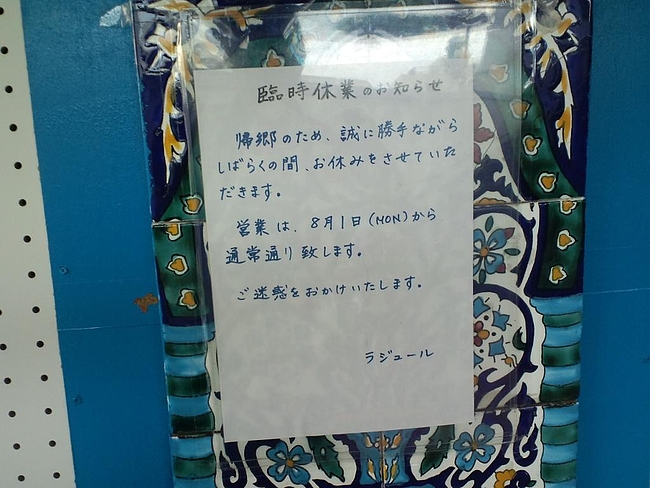 臨時休業のお知らせ
帰郷のため、誠に勝手ながら
しばらくの間、お休みをさせていた
だきます。
営業は、8月1日(MON)から
通常通り致します。
ご迷惑をおかけいたします。
ラジュール